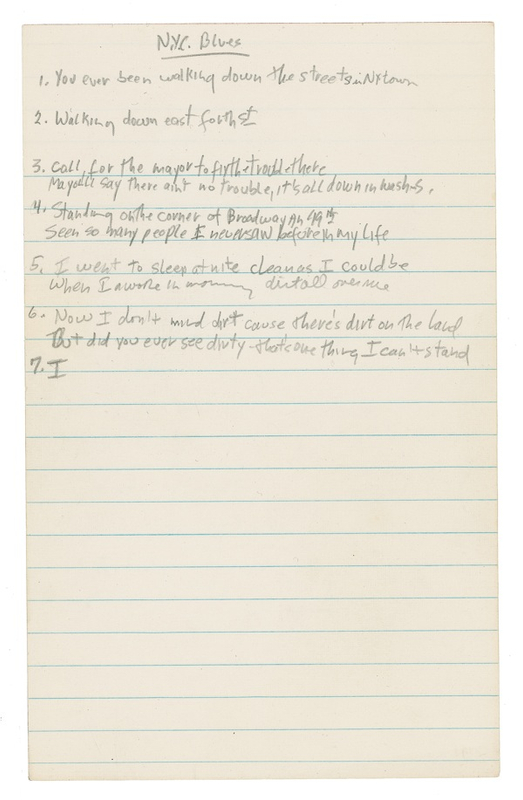 N.Y.C. Blues
1. You ever been walking down the streets in NY town
2. Walking down east forth St
3. Call for the mayor to fix the trouble there
Mayor'll say there ain't no trouble, it's all down in wash-s.
4. Standing on the corner of Broadway An 49th
Seen so many people I never saw before in my life
5. I went to sleep at nite clean as I could be
When I awoke in morning dirt all over me
6. Now I don't mind dirt cause there's dirt on the land
But did you ever see dirty - that's one thing I can't stand
7. I